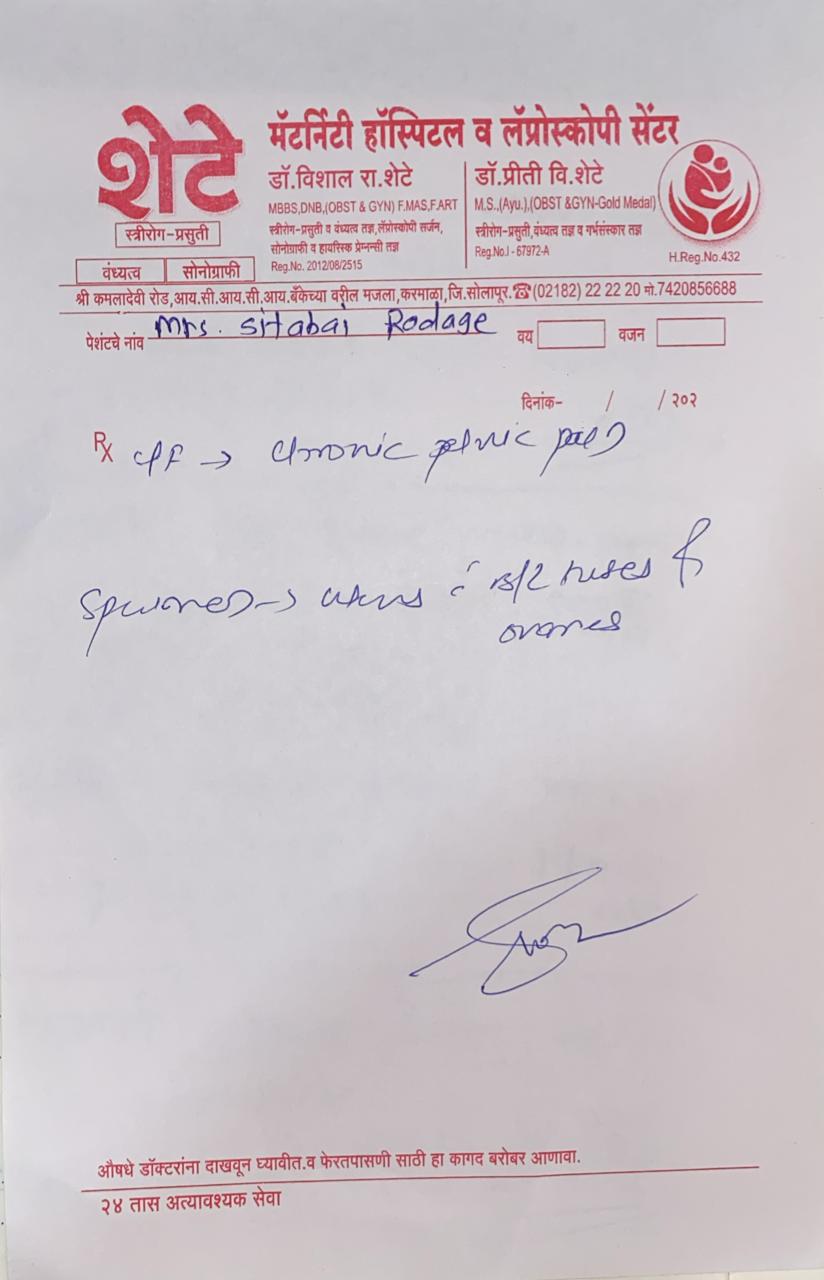 शेटे
मॅटर्निटी हॉस्पिटल व लॅप्रोस्कोपी सेंटर
स्त्रीरोग-प्रसुती
वंध्यत्व सोनोग्राफी
डॉ.विशाल रा.शेटे
MBBS,DNB,(OBST & GYN) F.MAS,F.ART
स्त्रीरोग-प्रसुती व वंध्यत्व तज्ञ,लॅप्रोस्कोपी सर्जन,
सोनोग्राफी व हायरिस्क प्रेग्नन्सी तज्ञ
Reg.No. 2012/08/2515
डॉ.प्रीती वि.शेटे
M.S.,(Ayu.),(OBST &GYN-Gold Medal)
स्त्रीरोग-प्रसुती,वंध्यत्व तज्ञ व गर्भसंस्कार तज्ञ
Reg.No.I - 67972-A
H.Reg.No.432
श्री कमलादेवी रोड,आय.सी.आय.सी.आय.बँकेच्या वरील मजला,करमाळा,जि.सोलापूर.☎(02182) 22 22 20 मो.7420856688
पेशंटचे नांव Mrs. Sitabai Rodage वय वजन
दिनांक- / / २०२
Rx → chronic pelvic pain
Specimen → uterus c̄ B/L tubes &
ovaries
औषधे डॉक्टरांना दाखवून घ्यावीत.व फेरतपासणी साठी हा कागद बरोबर आणावा.
२४ तास अत्यावश्यक सेवा